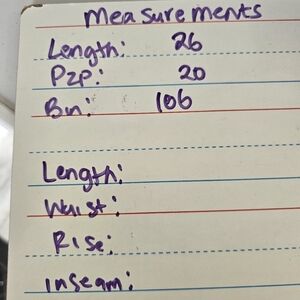 Measurements
Length: 26
P2P: 20
Bn: 106
Length:
Waist:
Rise:
inseam: